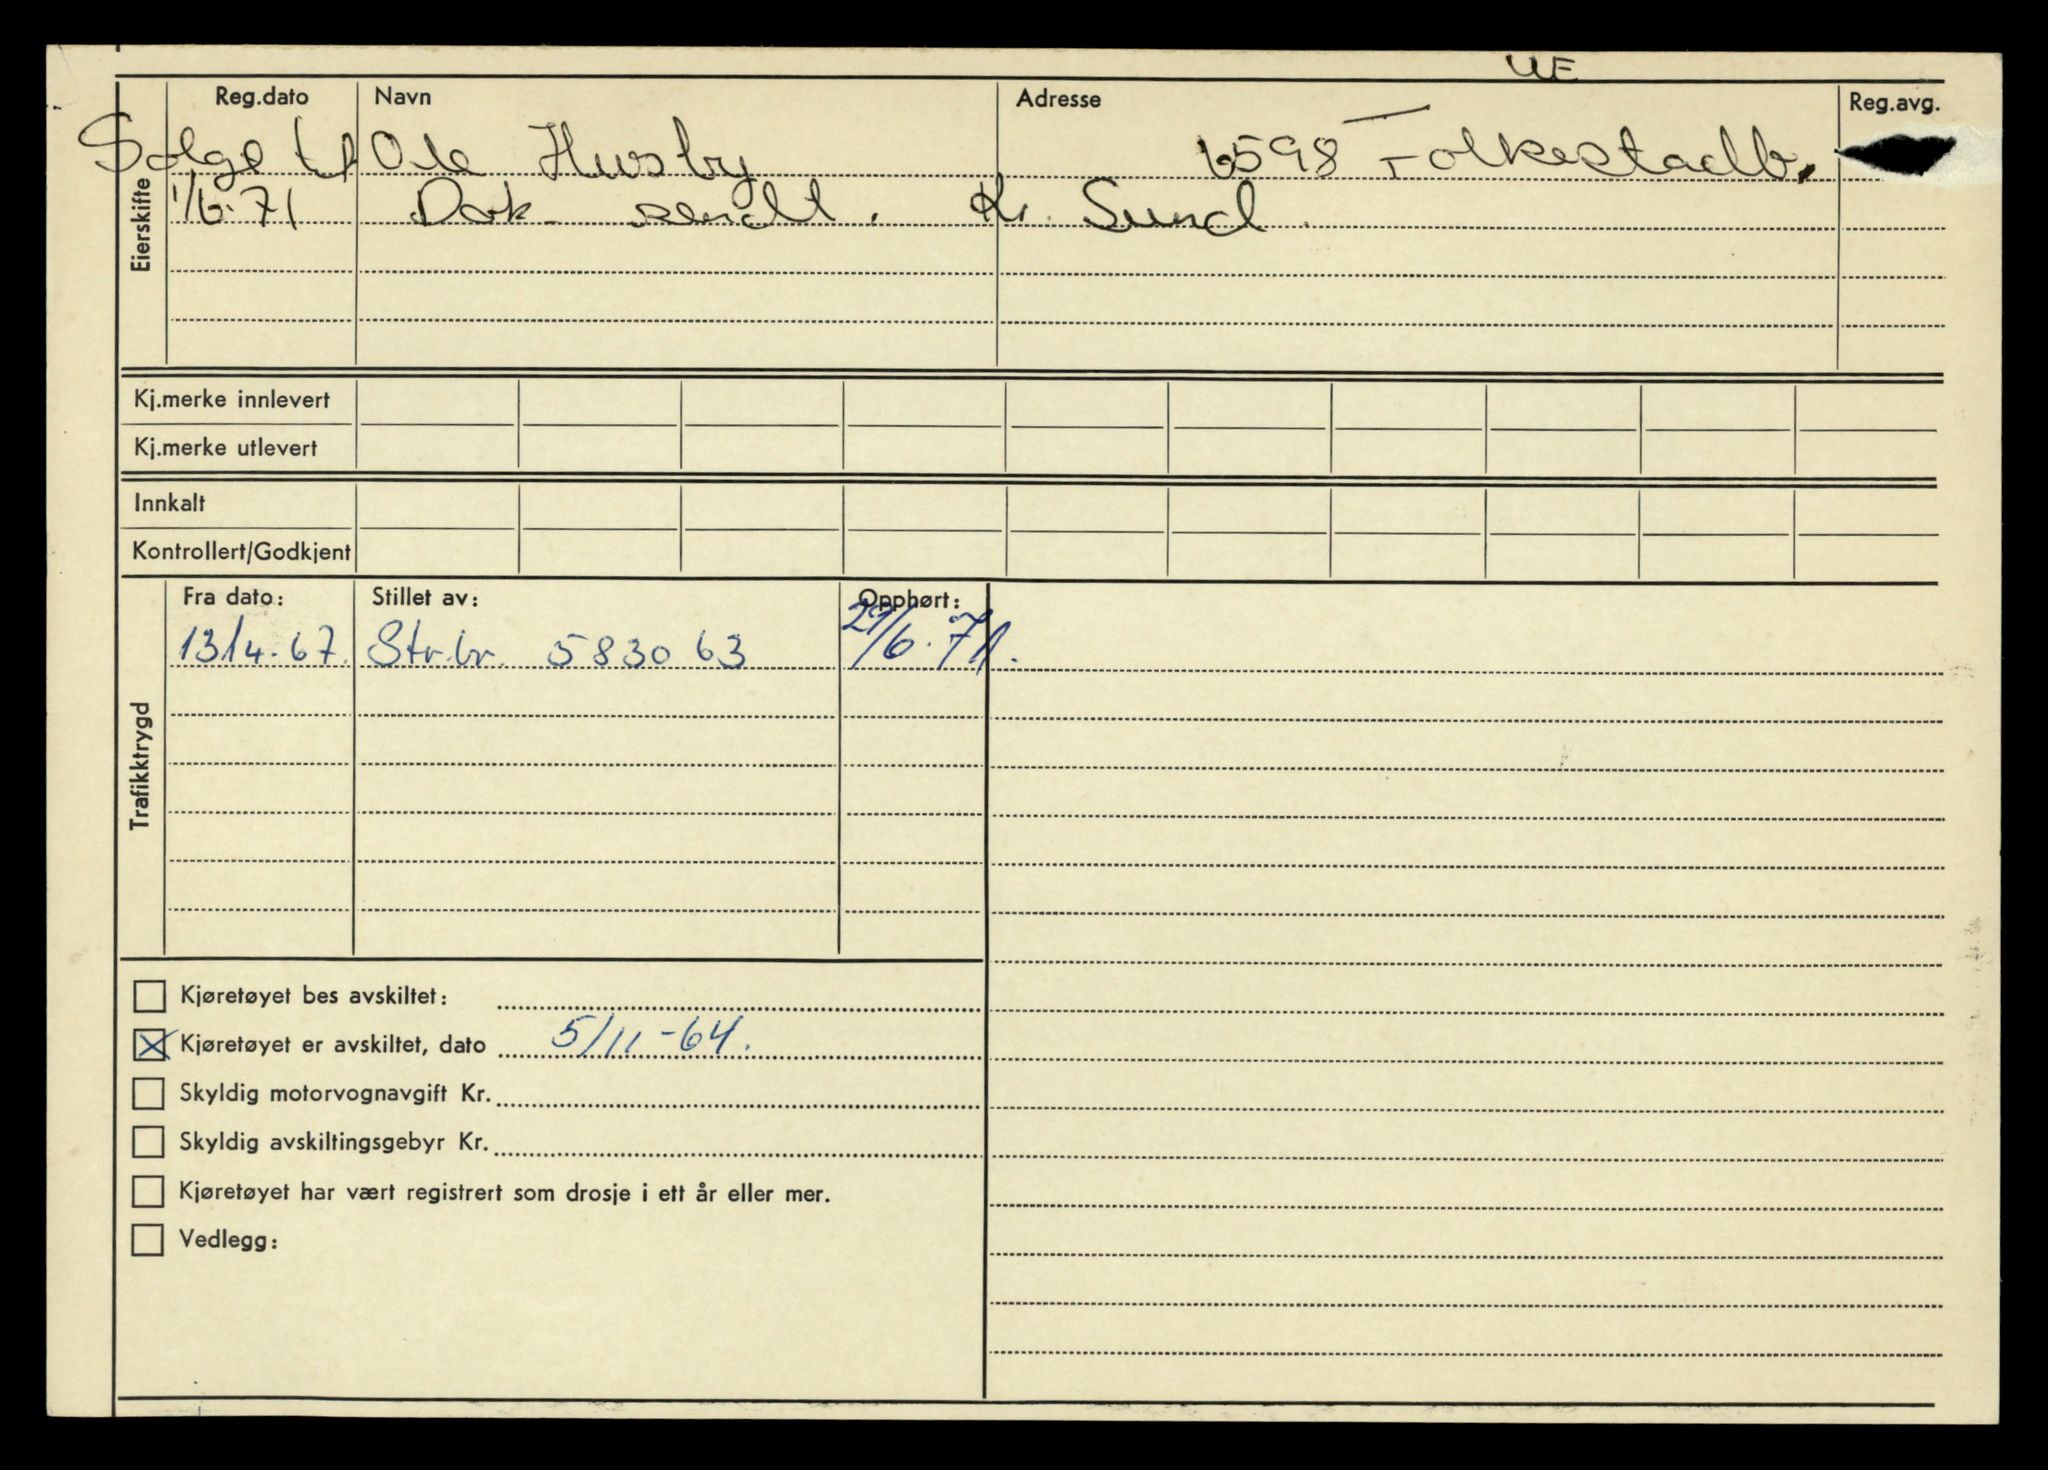 UE
Reg.dato Navn Adresse Reg.avg.
Solgt til Ole Husby 6598 Folkestadb.
1/6.71 Dok sendt. Kr. Sund.
Eierskifte
Kj.merke innlevert
Kj.merke utlevert
Innkalt
Kontrollert/Godkjent
Fra dato: Stillet av: Opphørt:
13/4.67. Str.br. 583063 29/6.71.
Trafikktrygd
Kjøretøyet bes avskiltet:
Kjøretøyet er avskiltet, dato 5/11-64.
Skyldig motorvognavgift Kr.
Skyldig avskiltingsgebyr Kr.
Kjøretøyet har vært registrert som drosje i ett år eller mer.
Vedlegg: